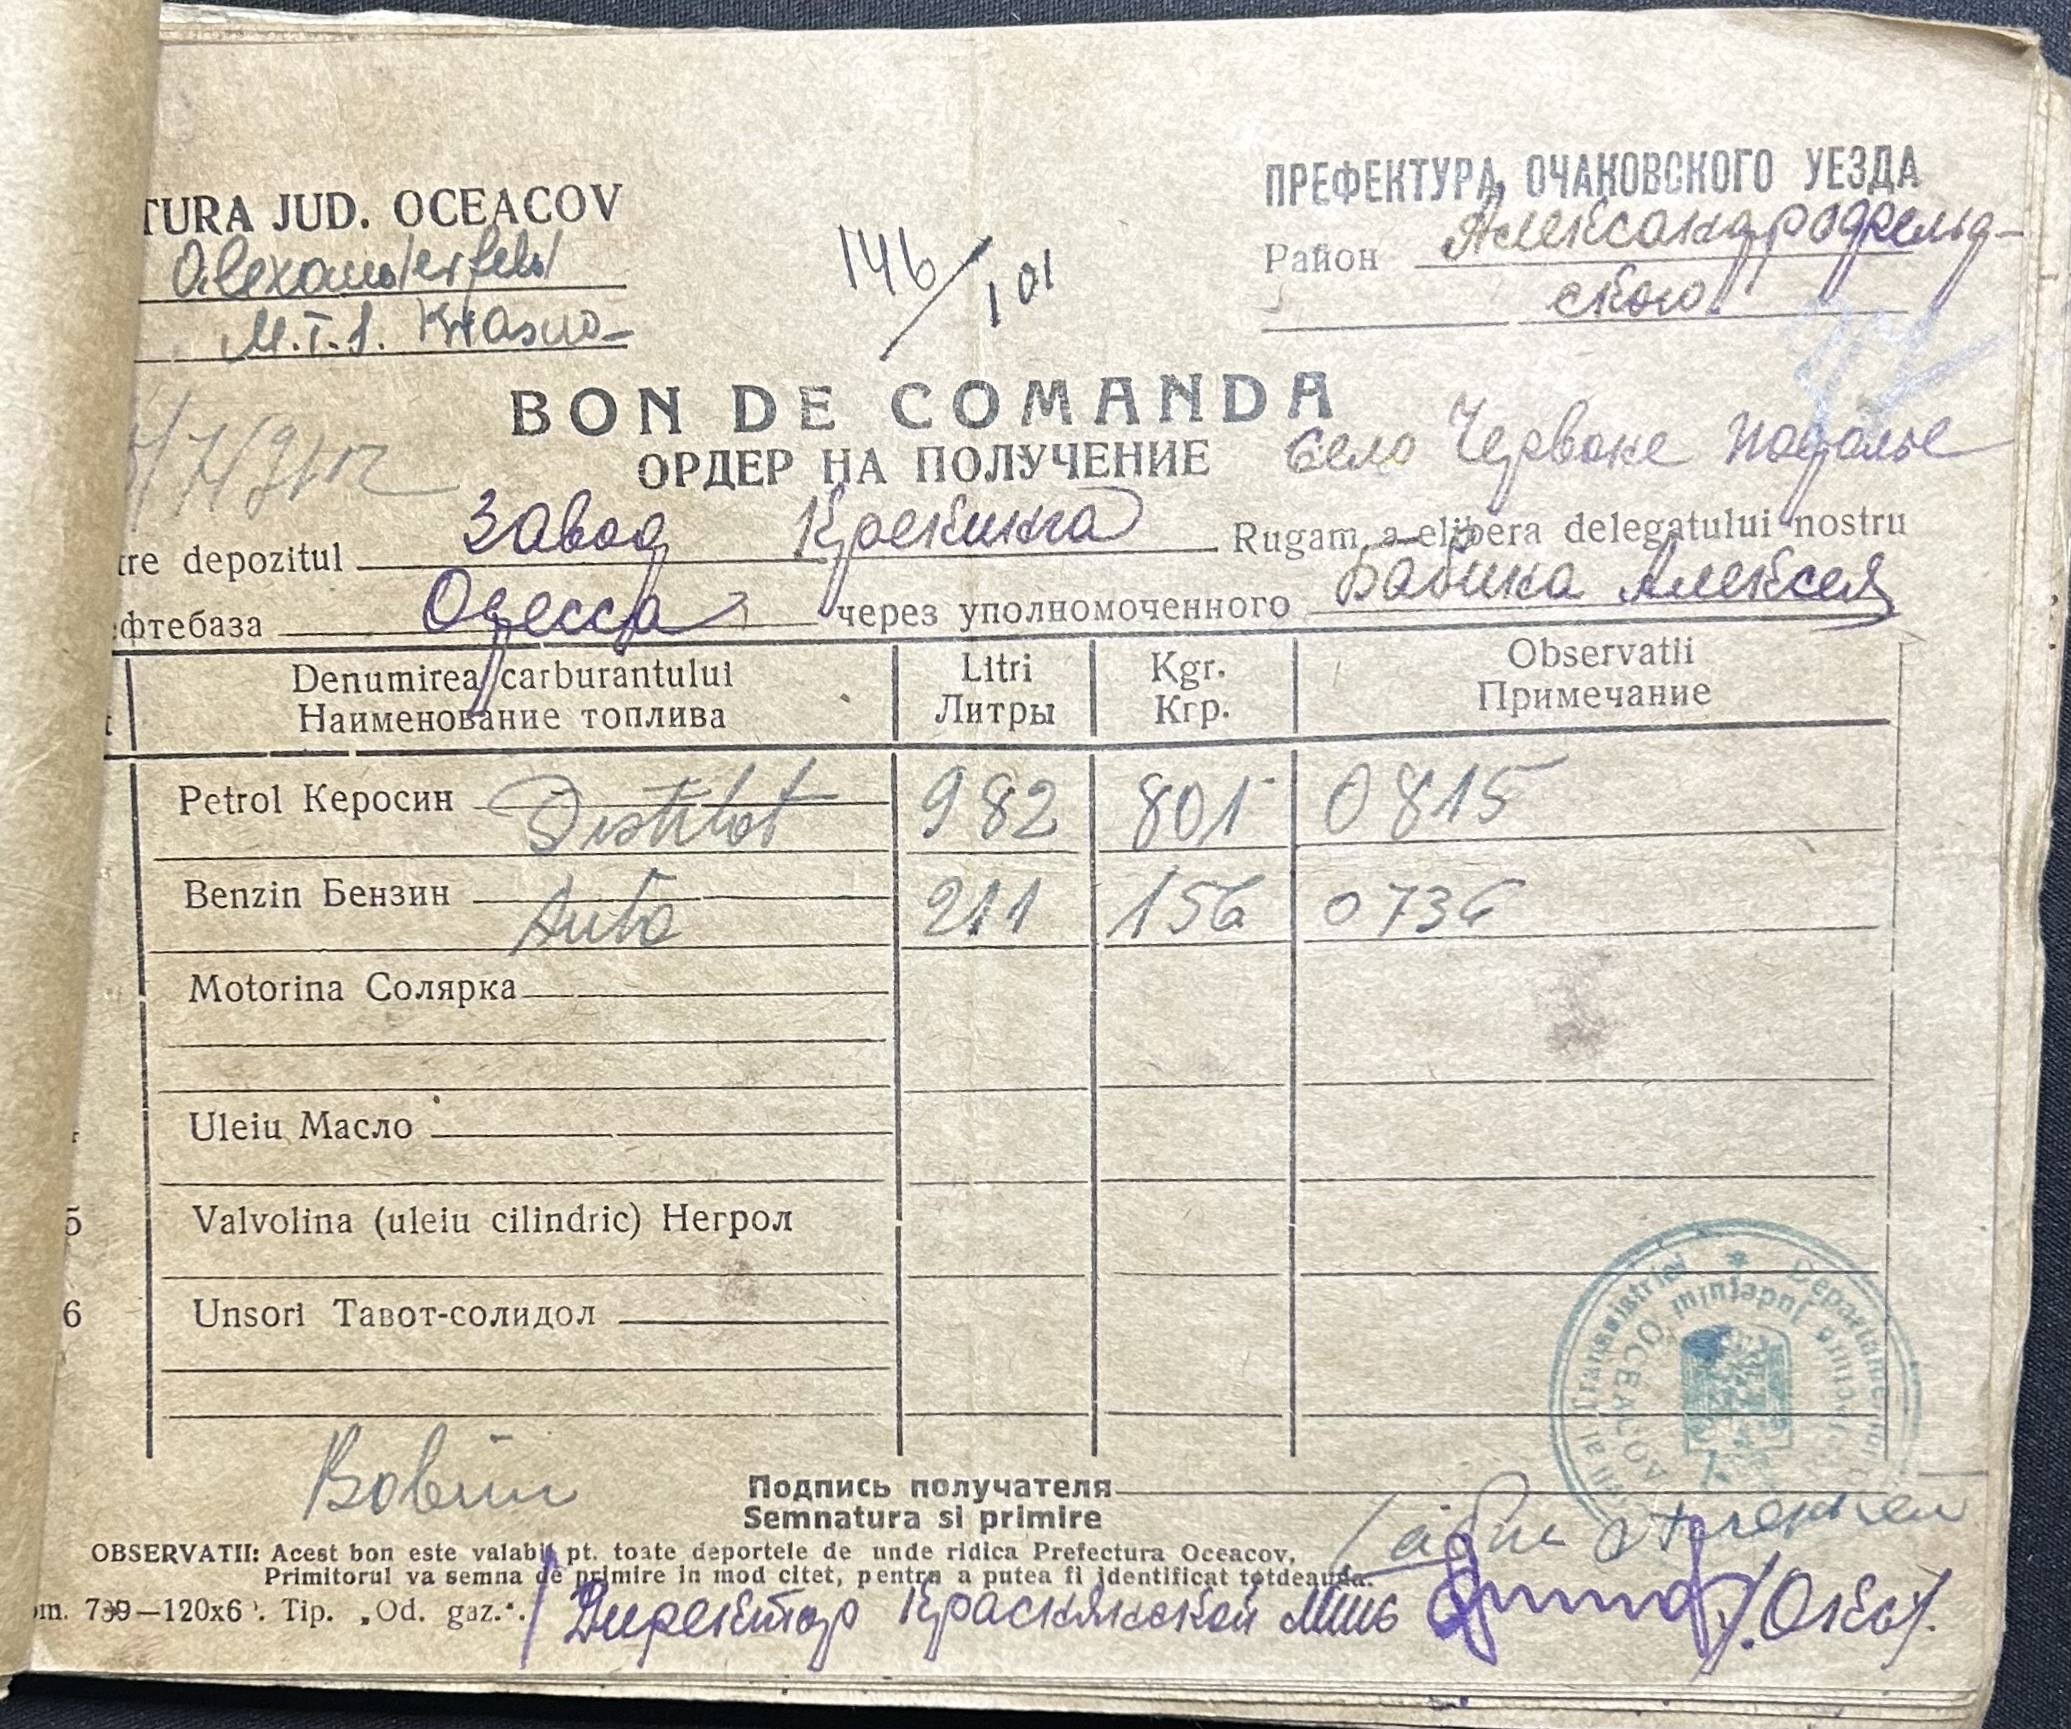 TURA JUD. OCEACOV
ПРЕФЕКТУРА ОЧАКОВСКОГО УЕЗДА
Alexanderfeld
146/101
Район Александрофельд-
ского
M.T.S. Krasno-
BON DE COMANDA
ОРДЕР НА ПОЛУЧЕНИЕ
Село Червоне Подолье
tre depozitul Завод Крекинга Rugam a elibera delegatului nostru
фтебаза Одесса через уполномоченного Бабина Алексея
Denumirea carburantului Litri Kgr. Observatii
Наименование топлива Литры Кгр. Примечание
Petrol Керосин Distilat 982 801 0815
Benzin Бензин Auto 211 156 0736
Motorina Солярка
Uleiu Масло
5 Valvolina (uleiu cilindric) Негрол
6 Unsori Тавот-солидол
Подпись получателя
Semnatura si primire
OBSERVATII: Acest bon este valabil pt. toate deportele de unde ridica Prefectura Oceacov,
Primitorul va semna de primire in mod citet, pentru a putea fi identificat totdeauna.
om. 739—120x6 . Tip. „Od. gaz.“.
Директор Краснянской Мтс
OCEACOV